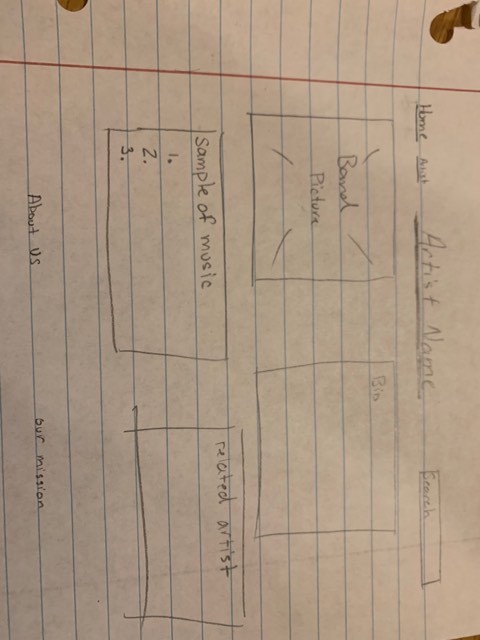 Home
Artist Name
Search
Band
Picture
Bio
Sample of music
1.
2.
3.
related artist
About us
our mission